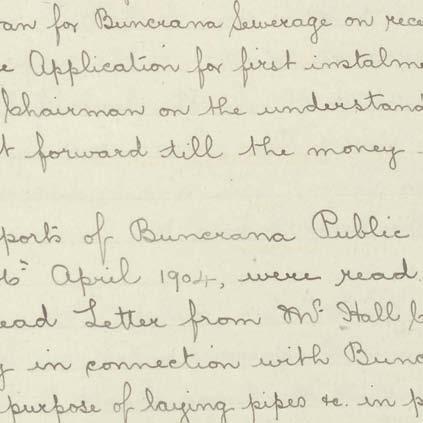 an for Buncrana Sewerage on rece
e Application for first instalme
Chairman on the understand
t forward till the money
ports of Buncrana Public
6th April 1904, were read.
ead Letter from Mr Hall
y in connection with Bunc
purpose of laying pipes &c. in p